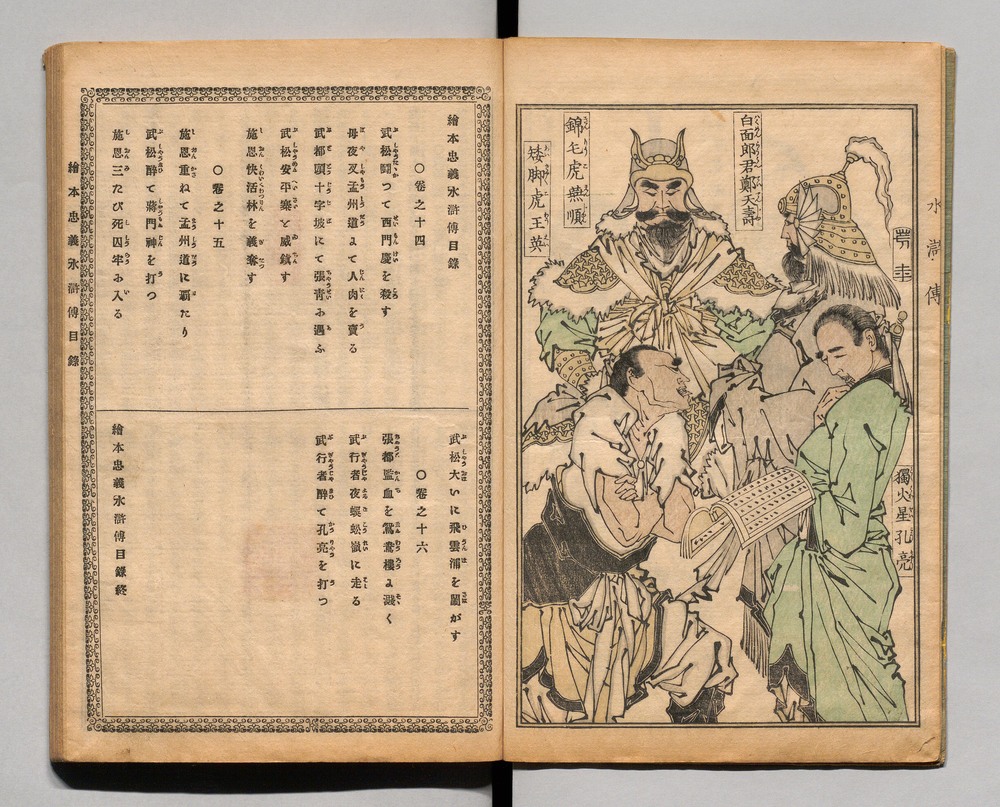 水滸傳
白面郎君鄭天壽
錦毛虎燕順
矮脚虎王英
獨火星孔亮
繪本忠義水滸傳目錄
○卷之十四
武松鬪つて西門慶を殺す
母夜叉孟州道よて人肉を賣る
武都頭十字坡にて張青ふ遇ふ
武松安平寨を威鎮す
施恩快活林を義奪す
○卷之十五
施恩重ねて孟州道に覇たり
武松醉て蔣門神を打つ
施恩三たび死囚牢ふ入る
武松大いに飛雲浦を鬧がす
○卷之十六
張都監血を鴛鴦樓よ濺く
武行者夜蜈蚣嶺に走る
武行者醉て孔亮を打つ
繪本忠義水滸傳目錄終
繪本忠義水滸傳目錄